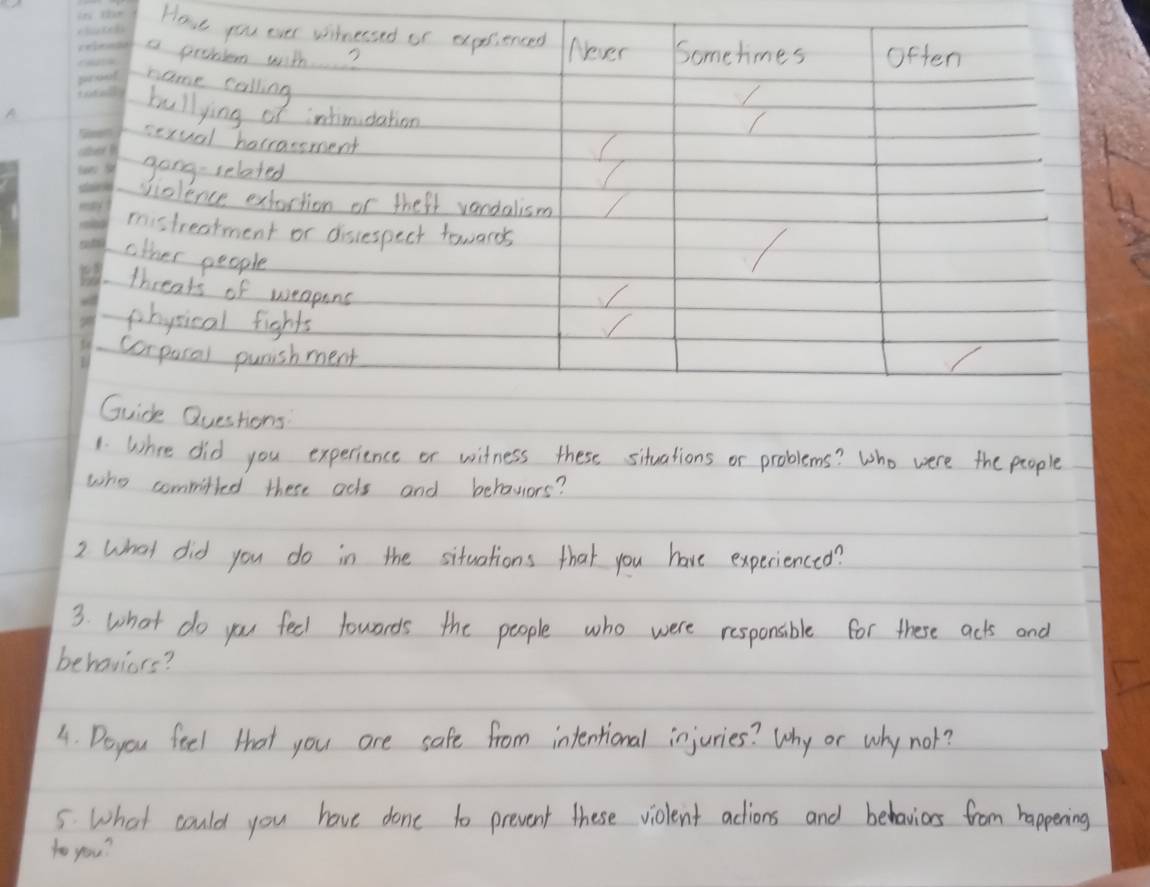 Have you ever witnessed or experienced a problem with ....? Never Sometimes Often
name calling ✓
bullying or intimidation ✓
sexual harrassment ✓
gang-related ✓
violence extortion or theft vandalism ✓
mistreatment or disrespect towards
other people ✓
threats of weapons ✓
physical fights ✓
corporal punishment ✓
Guide Questions:
1. Whre did you experience or witness these situations or problems? Who were the people
who committed these acts and behaviors?
2 What did you do in the situations that you have experienced?
3. What do you feel towards the people who were responsible for these acts and
behaviors?
4. Do you feel that you are safe from intentional injuries? Why or why not?
5. What could you have done to prevent these violent actions and behaviors from happening
to you?